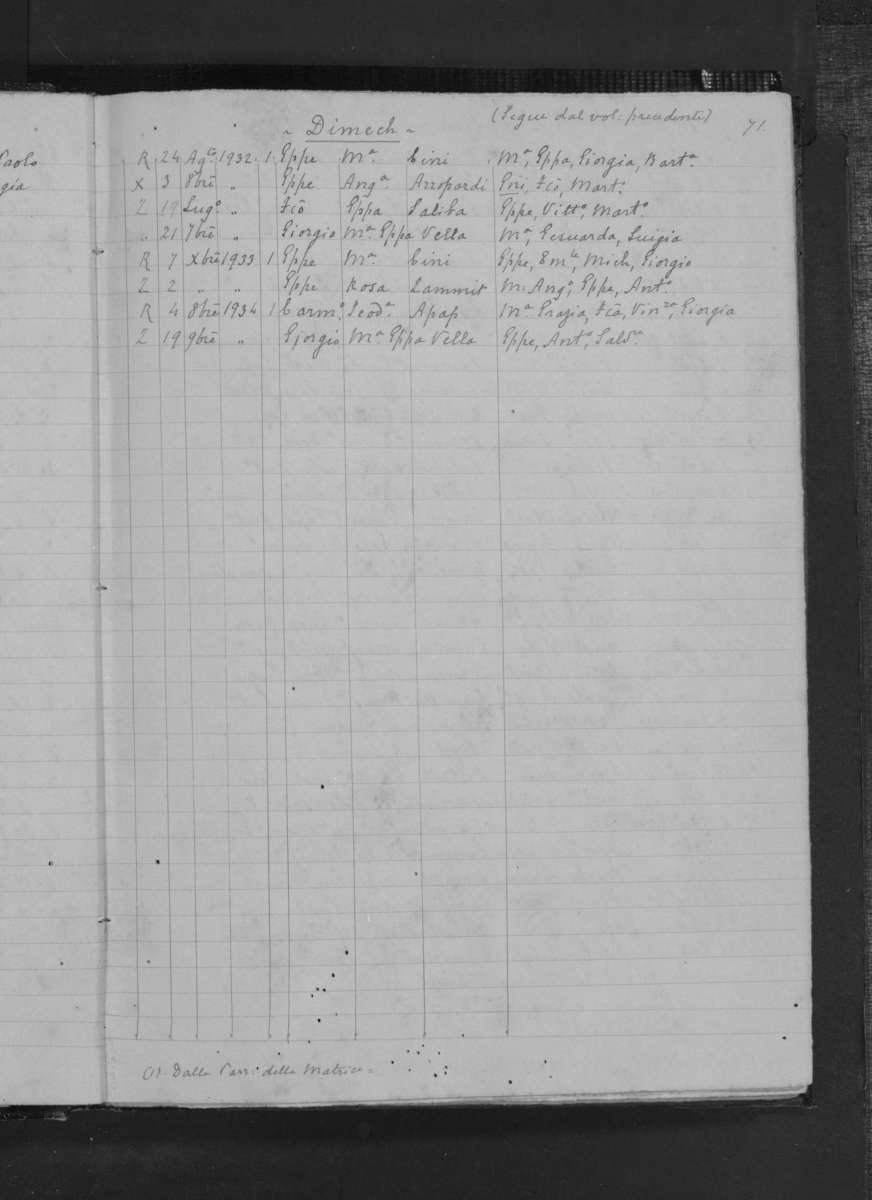 (Segue dal vol: precedente)
71.
~ Dimech ~
Paolo
gia
R 24 Ag.to 1932 1 Eppe Ma. Cini Ma, Eppa, Giorgia, Barta.
X 3 8bre „ Eppe Anga. Azzopardi Gni, Fco, Marta.
Z 19 Lugo. „ Fco Eppa Saliba Eppe, Vitto, Marto.
„ 21 7bre „ Giorgio Ma. Eppa Vella Ma, Gesuarda, Luigia
R 7 Xbre 1933 1 Eppe Ma. Cini Eppe, Emle, Mich, Giorgio
Z 2 „ „ Eppe Rosa Zammit M. Ango, Eppa, Anto.
R 4 8bre 1934 1 Carmo. Leoda. Apap Ma Grazia, Fca, Vinza, Giorgia
Z 19 9bre „ Giorgio Ma Eppa Vella Eppe, Anto, Salvr.
(1) Dalla Parr: della Matrice